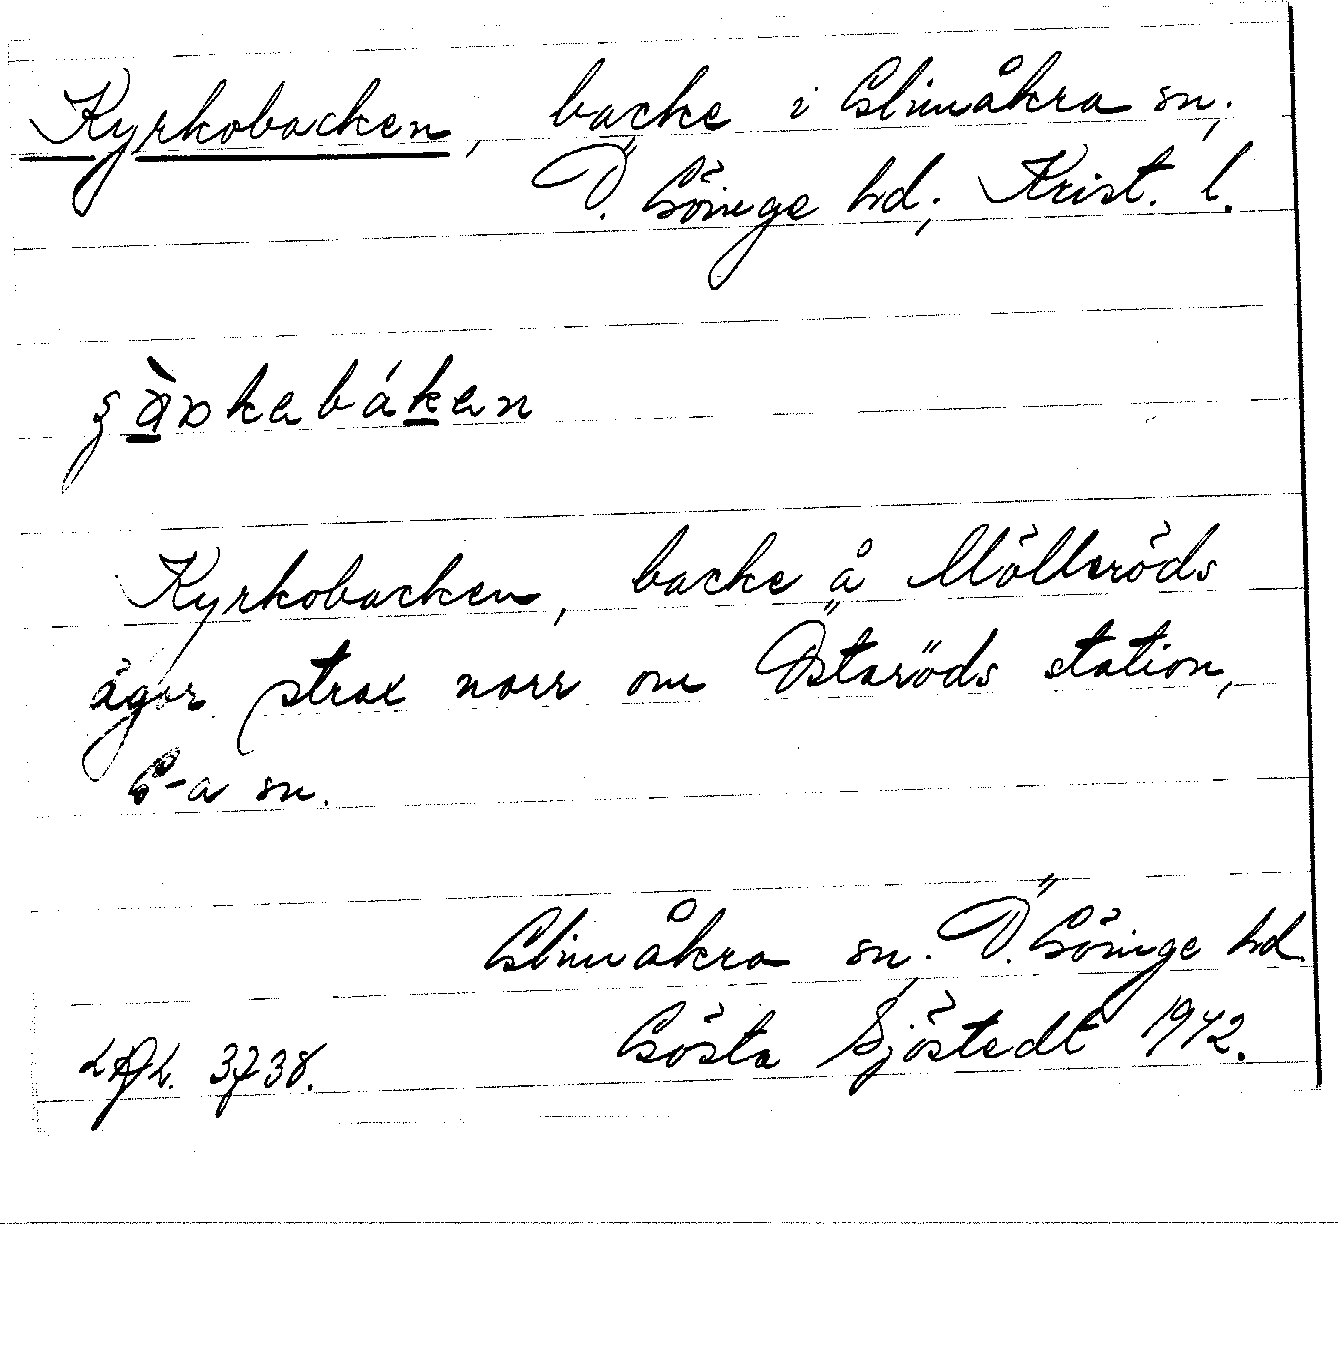 Kyrkobacken, backe i Glimåkra sn,
Ö. Göinge hd, Krist. l.
Kyrkobacken, backe å Mölleröds
ägor strax norr om Östaröds station,
G-a sn.
Glimåkra sn. Ö. Göinge hd.
Gösta Sjöstedt 1942.
3738.